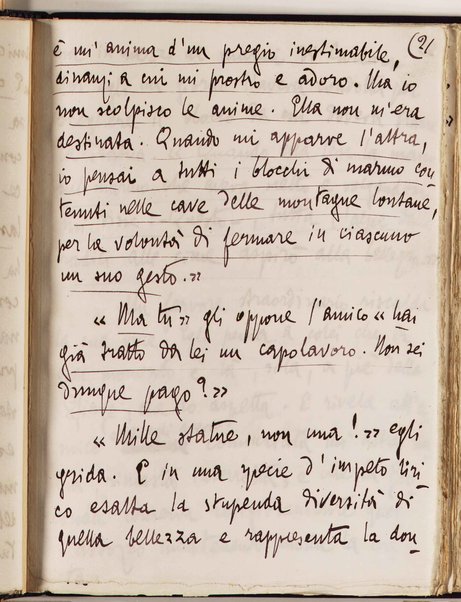 (21
è un'anima d'un pregio inestimabile,
dinanzi a cui mi prostro e adoro. Ma io
non scolpisco le anime. Ella non m'era
destinata. Quando mi apparve l'altra,
io pensai a tutti i blocchi di marmo con-
tenuti nelle cave delle montagne lontane,
per la volontà di fermare in ciascuno
un suo gesto.»
« Ma tu» gli oppone l'amico « hai
già tratto da lei un capolavoro. Non sei
dunque pago?»
« Mille statue, non una!» egli
grida. E in una specie d'impeto liri-
co esalta la stupenda diversità di
quella bellezza e rappresenta la don-